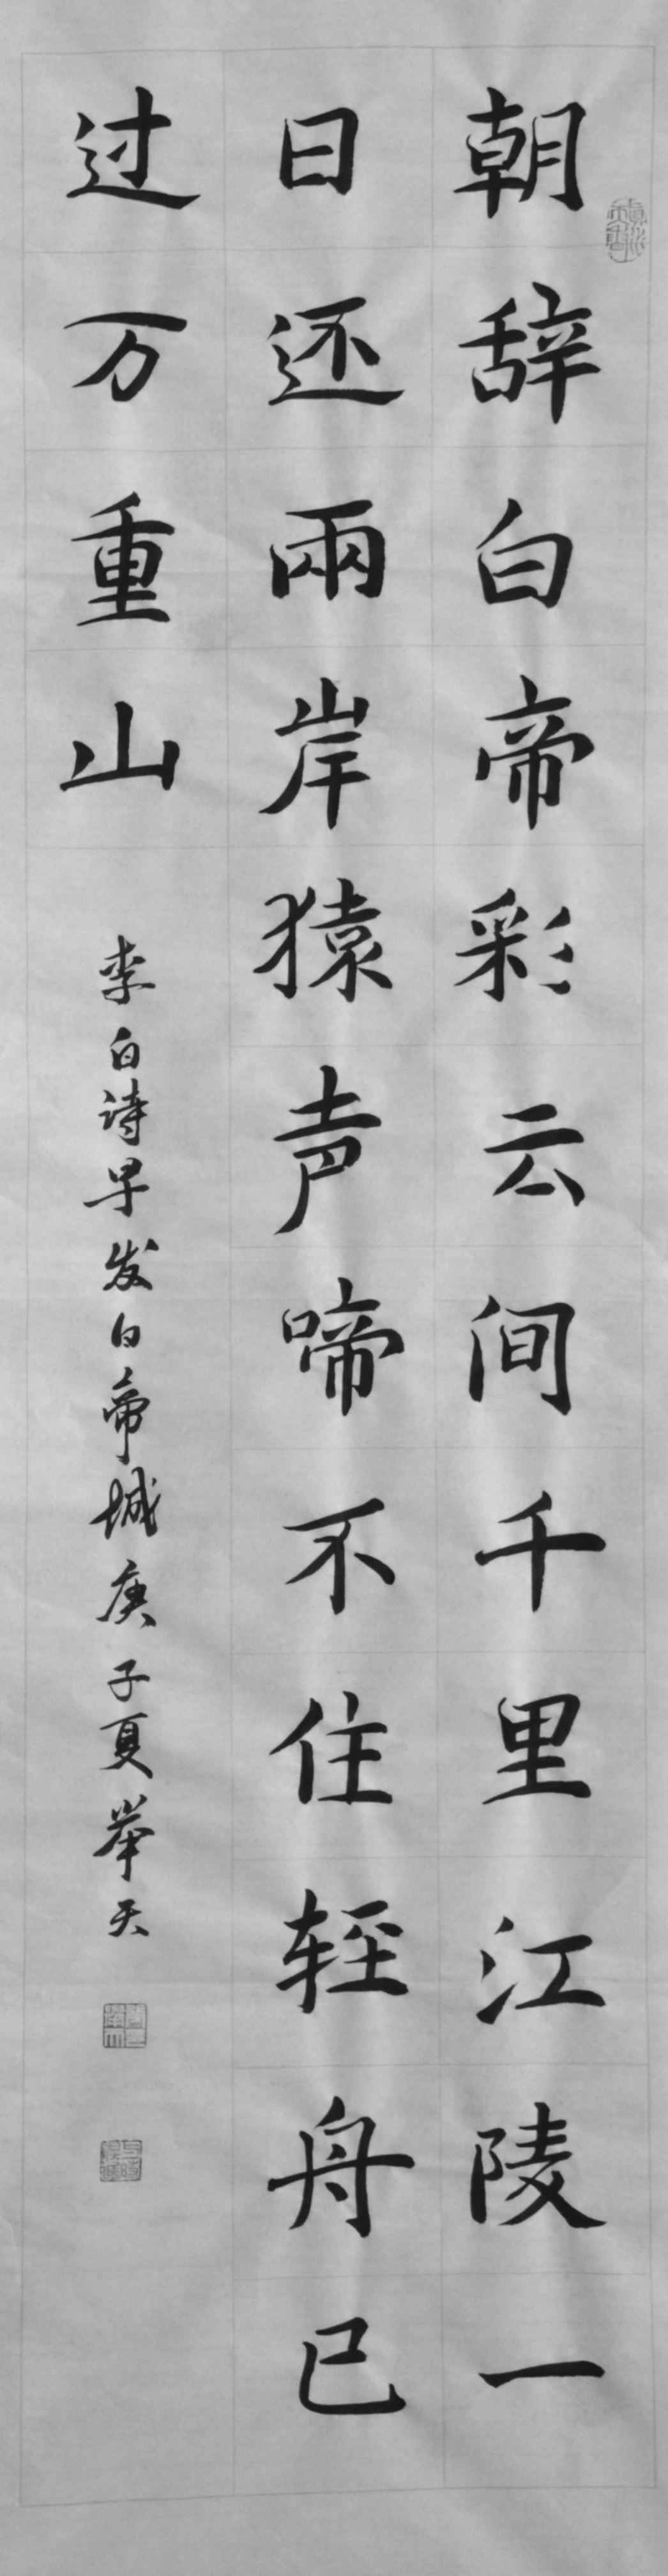 朝辞白帝彩云间千里江陵一
日还兩岸猿声啼不住轻舟已
过万重山
李白诗早发白帝城庚子夏举天